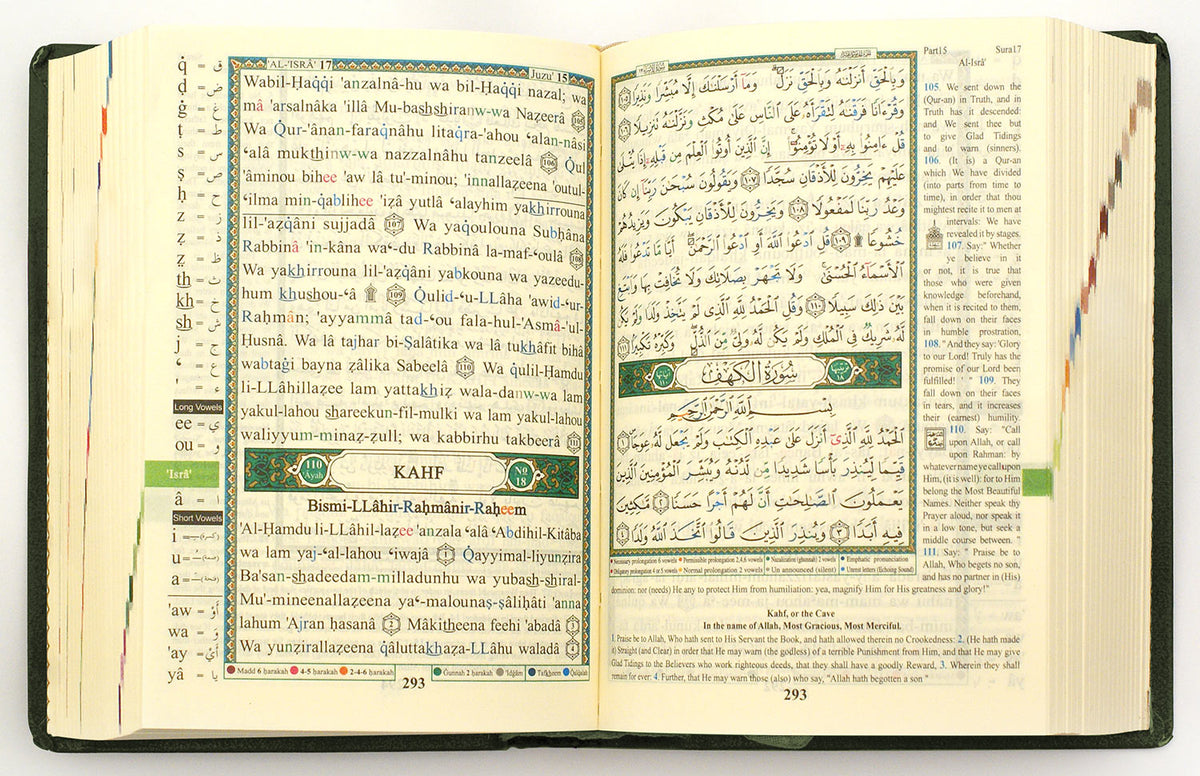 'AL-'ISRÂ' 17
Juzu' 15
Wabil-Ḥaqqi 'anzalnâ-hu wa bil-Ḥaqqi nazal; wa
mâ 'arsalnâka 'illâ Mu-bashshiranw-wa Nazeerâ 105
Wa Qur-'ânan-faraqnâhu litaqra-'ahou 'alan-nâsi
'alâ mukthinw-wa nazzalnâhu tanzeelâ 106 Qul
'âminou bihee 'aw lâ tu'-minou; 'innallaẓeena 'outul-
'ilma min-qablihee 'iẓâ yutlâ 'alayhim yakhirrouna
lil-'aẓqâni sujjadâ 107 Wa yaqoulouna Subḥâna
Rabbinâ 'in-kâna wa'-du Rabbinâ la-maf-'oulâ 108
Wa yakhirrouna lil-'aẓqâni yabkouna wa yazeedu-
hum khushou-'â ۩ 109 Qulid-'u-LLâha 'awid-'ur-
Raḥmân; 'ayyammâ tad-'ou fala-hul-'Asmâ-'ul-
Ḥusnâ. Wa lâ tajhar bi-Ṣalâtika wa lâ tukhâfit bihâ
wabtaġi bayna ẓâlika Sabeelâ 110 Wa qulil-Ḥamdu
li-LLâhillaẓee lam yattakhiẓ wala-danw-wa lam
yakul-lahou shareekun-fil-mulki wa lam yakul-lahou
waliyyum-minaẓ-ẓull; wa kabbirhu takbeerâ 111
110 Ayah KAHF No 18
Bismi-LLâhir-Raḥmânir-Raḥeem
'Al-Ḥamdu li-LLâhil-laẓee 'anzala 'alâ 'Abdihil-Kitâba
wa lam yaj-'al-lahou 'iwajâ 1 Qayyimal-liyunẓira
Ba'san-shadeedam-milladunhu wa yubash-shiral-
Mu'-mineenallaẓeena ya'-malounaṣ-ṣâliḥâti 'anna
lahum 'Ajran ḥasanâ 2 Mâkitheena feehi 'abadâ 3
Wa yunẓirallaẓeena qâluttakhaẓa-LLahu waladâ 4
Madd 6 ḥarakah 4-5 ḥarakah 2-4-6 ḥarakah Ġunnah 2 ḥarakah 'Idġâm Tafkheem Qalqalah
293
q = ق
ḍ = ض
ġ = غ
ṭ = ط
s = س
ṣ = ص
ḥ = ح
z = ز
ẓ = ذ
ẓ = ظ
th = ث
kh = خ
sh = ش
j = ج
' = ع
' = ء
Long Vowels
ee = ي
ou = و
'Isrâ'
â = ا
Short Vowels
i =
u =
a =
'aw = أَوْ
wa = وَ
'ay = أَيْ
yâ = يا
وَبِالْحَقِّ أَنزَلْنَٰهُ وَبِالْحَقِّ نَزَلَ وَمَا أَرْسَلْنَٰكَ إِلَّا مُبَشِّرًا وَنَذِيرًا ١٠٥
وَقُرْءَانًا فَرَقْنَٰهُ لِتَقْرَأَهُ عَلَى النَّاسِ عَلَىٰ مُكْثٍ وَنَزَّلْنَٰهُ تَنزِيلًا ١٠٦
قُلْ ءَامِنُوا بِهِ أَوْ لَا تُؤْمِنُوا إِنَّ الَّذِينَ أُوتُوا الْعِلْمَ مِن قَبْلِهِ إِذَا يُتْلَىٰ
عَلَيْهِمْ يَخِرُّونَ لِلْأَذْقَانِ سُجَّدًا ١٠٧ وَيَقُولُونَ سُبْحَٰنَ رَبِّنَا إِن كَانَ
وَعْدُ رَبِّنَا لَمَفْعُولًا ١٠٨ وَيَخِرُّونَ لِلْأَذْقَانِ يَبْكُونَ وَيَزِيدُهُمْ
خُشُوعًا ۩ ١٠٩ قُلِ ادْعُوا اللَّهَ أَوِ ادْعُوا الرَّحْمَٰنَ أَيًّا مَا تَدْعُوا فَلَهُ
الْأَسْمَاءُ الْحُسْنَىٰ وَلَا تَجْهَرْ بِصَلَاتِكَ وَلَا تُخَافِتْ بِهَا وَابْتَغِ
بَيْنَ ذَٰلِكَ سَبِيلًا ١١٠ وَقُلِ الْحَمْدُ لِلَّهِ الَّذِي لَمْ يَتَّخِذْ وَلَدًا وَلَمْ يَكُن
لَّهُ شَرِيكٌ فِي الْمُلْكِ وَلَمْ يَكُن لَّهُ وَلِيٌّ مِّنَ الذُّلِّ وَكَبِّرْهُ تَكْبِيرًا ١١١
سُورَةُ الْكَهْفِ
بِسْمِ اللَّهِ الرَّحْمَٰنِ الرَّحِيمِ
الْحَمْدُ لِلَّهِ الَّذِي أَنزَلَ عَلَىٰ عَبْدِهِ الْكِتَٰبَ وَلَمْ يَجْعَل لَّهُ عِوَجًا ١
قَيِّمًا لِّيُنذِرَ بَأْسًا شَدِيدًا مِّن لَّدُنْهُ وَيُبَشِّرَ الْمُؤْمِنِينَ الَّذِينَ
يَعْمَلُونَ الصَّٰلِحَٰتِ أَنَّ لَهُمْ أَجْرًا حَسَنًا ٢ مَّٰكِثِينَ
فِيهِ أَبَدًا ٣ وَيُنذِرَ الَّذِينَ قَالُوا اتَّخَذَ اللَّهُ وَلَدًا ٤
Necessary prolongation 6 vowels Permissible prolongation 2,4,6 vowels Nazalization (ghunnah) 2 vowels Emphatic pronunciation
Obligatory prolongation 4 or 5 vowels Normal prolongation 2 vowels Un announced (silent) Unrest letters (Echoing Sound)
Part15 Sura17
Al-Isrâ'
105. We sent down the
(Qur-an) in Truth, and in
Truth has it descended:
and We sent thee but
to give Glad Tidings
and to warn (sinners).
106. (It is) a Qur-an
which We have divided
(into parts from time
to time), in order that thou
mightest recite it to men at
intervals: We have
revealed it by stages.
107. Say:" Whether
ye believe in it
or not, it is true that
those who were given
knowledge beforehand,
when it is recited to them,
fall down on their faces
in humble prostration,
108. "And they say: 'Glory
to our Lord! Truly has the
promise of our Lord been
fulfilled!' " 109. They
fall down on their faces
in tears, and it increases
their (earnest) humility.
110. Say: "Call
upon Allah, or call
upon Rahman: by
whatever name ye call upon
Him, (it is well): for to Him
belong the Most Beautiful
Names. Neither speak thy
Prayer aloud, nor speak it
in a low tone, but seek a
middle course between. "
111. Say: " Praise be to
Allah, Who begets no son,
and has no partner in (His)
dominion: nor (needs) He any to protect Him from humiliation: yea, magnify Him for His greatness and glory!"
Kahf, or the Cave
In the name of Allah, Most Gracious, Most Merciful.
1. Praise be to Allah, Who hath sent to His Servant the Book, and hath allowed therein no Crookedness: 2. (He hath made
it) Straight (and Clear) in order that He may warn (the godless) of a terrible Punishment from Him, and that He may give
Glad Tidings to the Believers who work righteous deeds, that they shall have a goodly Reward, 3. Wherein they shall
remain for ever: 4. Further, that He may warn those (also) who say, "Allah hath begotten a son "
293